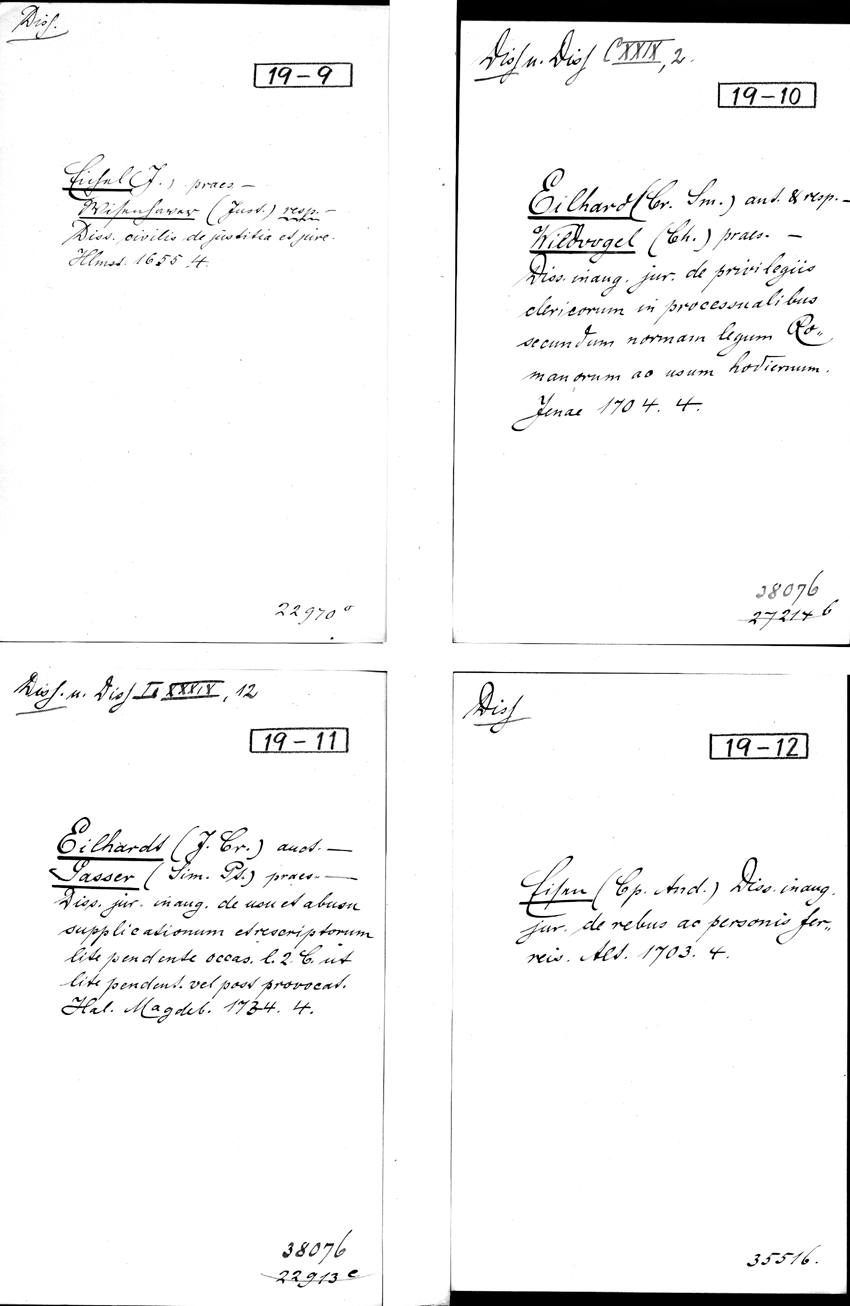 Diss.
19-9
Eichel (J.) praes. —
Wisenhaver (Just.) resp. —
Diss. civilis de justitia et jure.
Hlmst. 1655. 4.
22970 a
Diss u. Diss CXXIX, 2.
19-10
Eilhard (Cr. Sm.) aut. & resp. —
Wildvogel (Ch.) praes. —
Diss. inaug. jur. de privilegiis
clericorum in processualibus
secundum normam legum Ro-
manorum ac usum hodiernum.
Jenae 1704. 4.
38076
27214 b
Diss. u. Diss XXXIX, 12
19-11
Eilhardt (J. Cr.) auct. —
Gasser (Sim. Pt.) praes. —
Diss. jur. inaug. de usu et abusu
supplicationum et rescriptorum
lite pendente occas. l. 2. C. ut
lite pendent. vel post provocat.
Hal. Magdeb. 1734. 4.
38076
22913 c
Diss
19-12
Eisen (Cp. And.) Diss. inaug.
jur. de rebus ac personis fer-
reis. Alt. 1703. 4.
35516.